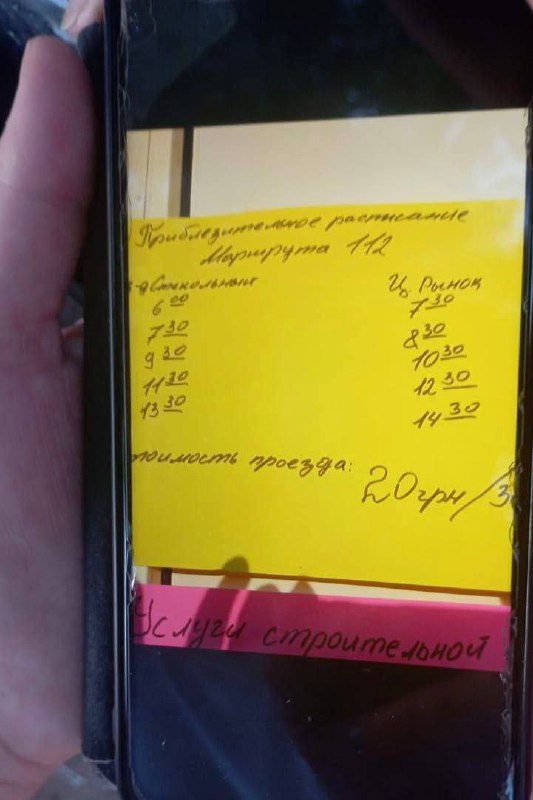 Приблезительное расписание
Маршрута 112
з-д Стекольный Ц. Рынок
6 00 7 30
7 30 8 30
9 30 10 30
11 30 12 30
13 30 14 30
тоимость проезда:
20грн/3
Услуги строительной